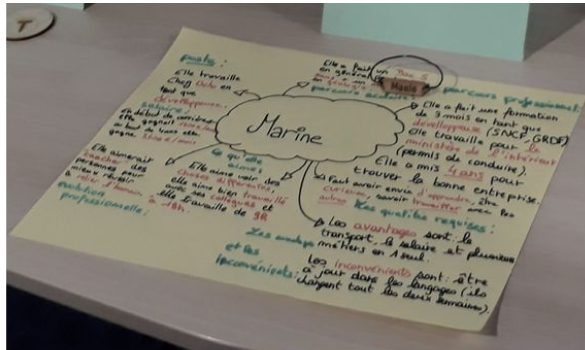 T
poste :
Elle travaille
chez Octo en
tant que
développeuse.
salaire :
En début de carrière
elle gagnait
au bout de
gagne
Elle aimerait
coacher des
personnes pour
mieux réussir
à relier l'humain
ambition
professionnelle :
Ce qu'elle
aime :
Elle aime bien des
choses différentes,
elle aime bien travailler
avec ses collègues et
elle travaille de 9h
à 18h.
Marine
Elle a fait un Bac S
en général
parcours scolaire
Maele
parcours professionnel
Elle a fait une formation
de 3 mois en tant que
développeuse (SNCF, GRDF)
Elle travaille pour le
ministère de l'intérieur
(permis de conduire).
Elle a mis 4 ans pour
trouver la bonne entreprise.
Faut avoir envie d'apprendre, être
curieux, savoir travailler avec les
autres
Les qualités requises :
Les avantages sont le
transport, le salaire et plusieurs
métiers en 1 seul.
Les avantages
et les
inconvénients :
Les inconvénients sont : être
à jour dans les langages (ils
changent tout les deux semaines).